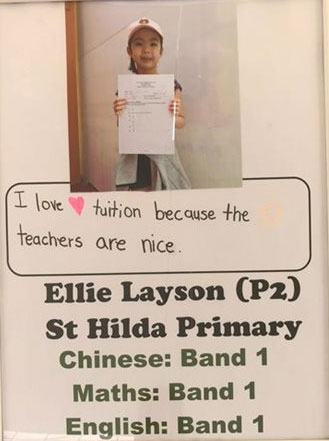 I love tuition because the
teachers are nice.
Ellie Layson (P2)
St Hilda Primary
Chinese: Band 1
Maths: Band 1
English: Band 1